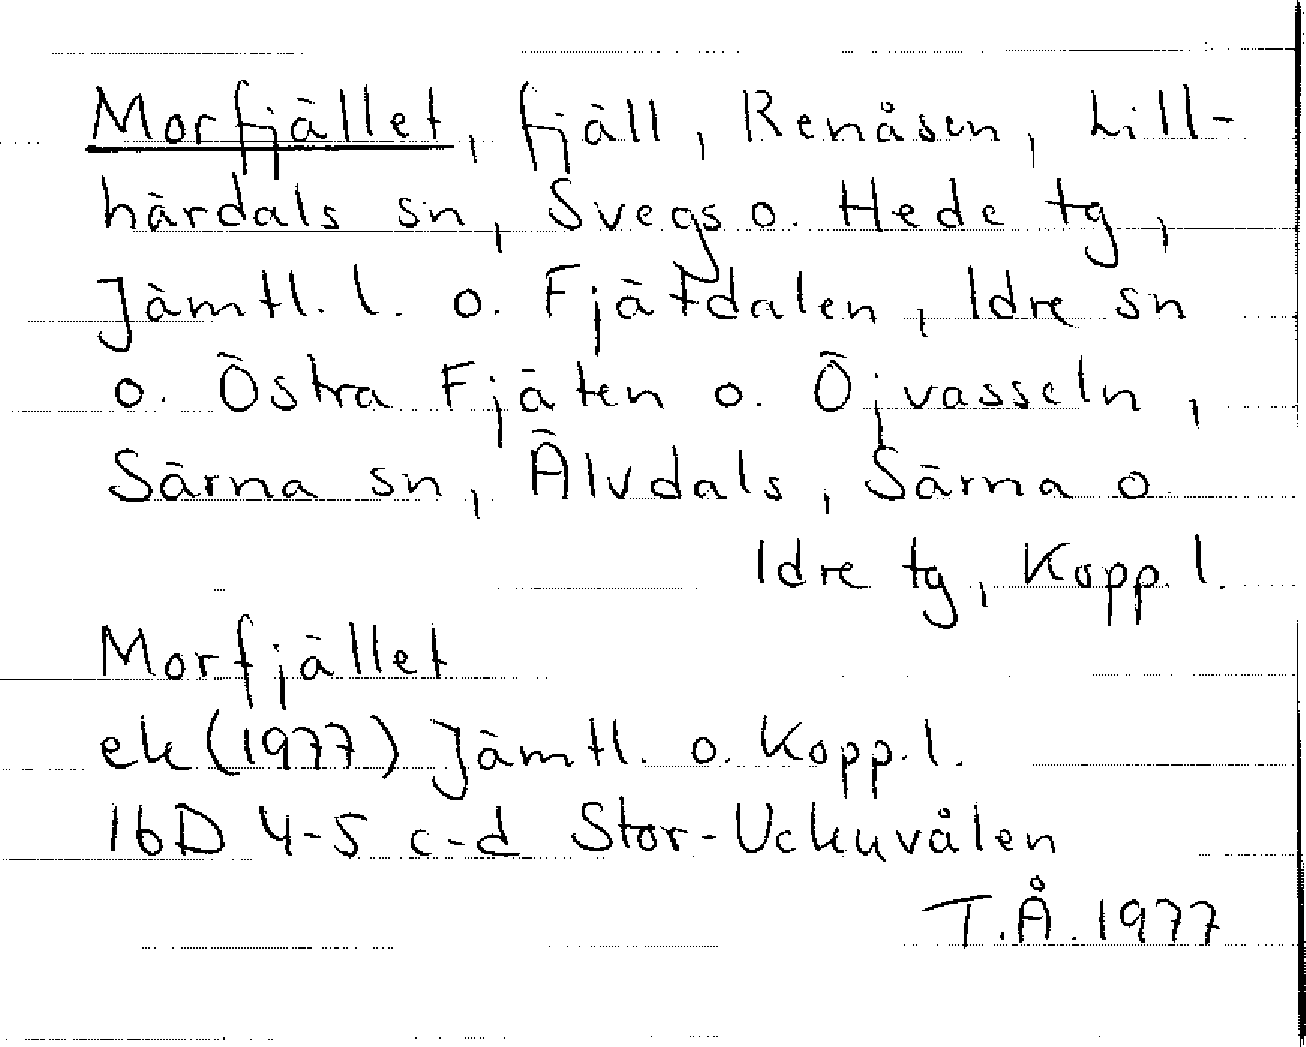 Morfjället, fjäll, Renåsen, Lill-
härdals sn, Svegs o. Hede tg,
Jämtl. l. o. Fjätdalen, Idre sn
o. Östra Fjäten o. Öjvasseln,
Särna sn, Älvdals, Särna o
Idre tg, Kopp. l.
Morfjället
ek (1977) Jämtl. o. Kopp. l.
16D 4-5 c-d Stor-Uckuvålen
T.Å. 1977